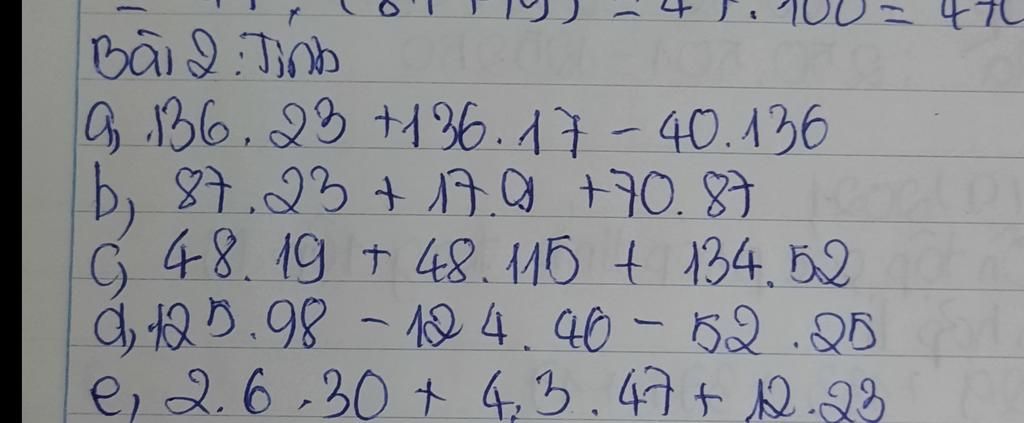 = 47. (81+19) = 47.100 = 470
Bài 2: Tính
a, 136.23 + 136.17 - 40.136
b, 87.23 + 17.9 + 70.87
c, 48.19 + 48.115 + 134.52
d, 125.98 - 124.40 - 52.25
e, 2.6.30 + 4.3.47 + 12.23